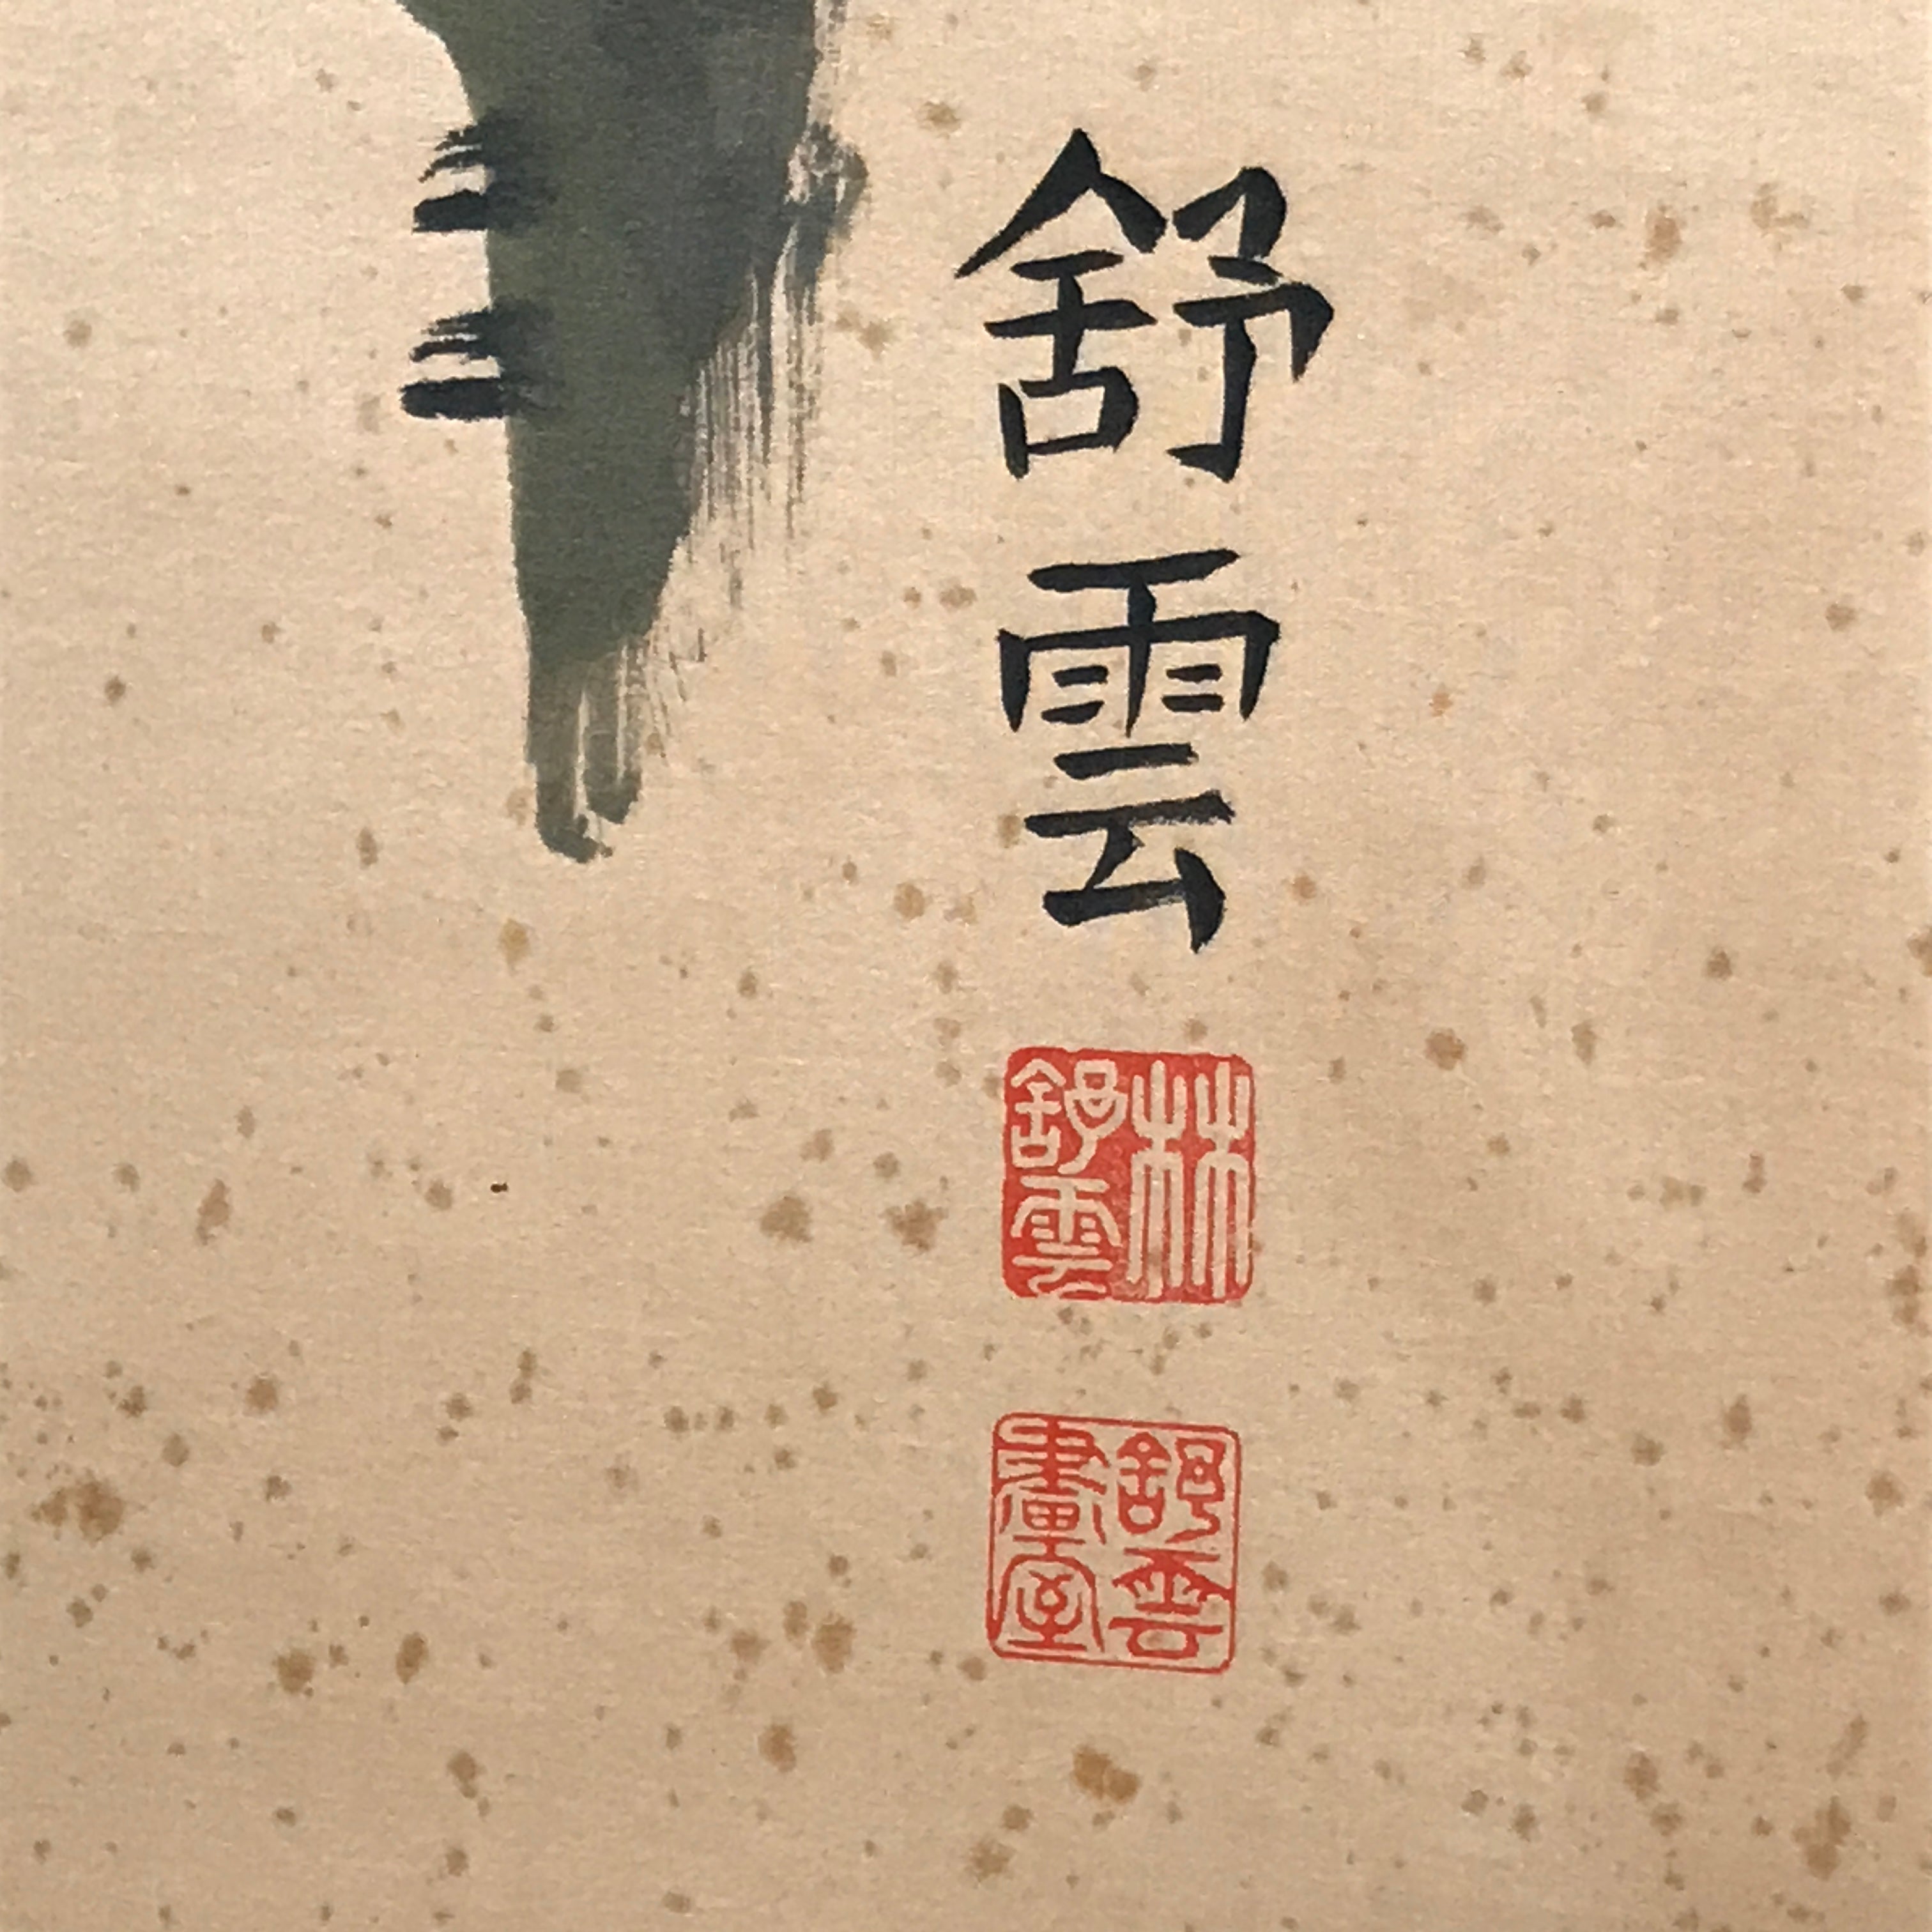 舒雲
林舒雲
舒雲畫室